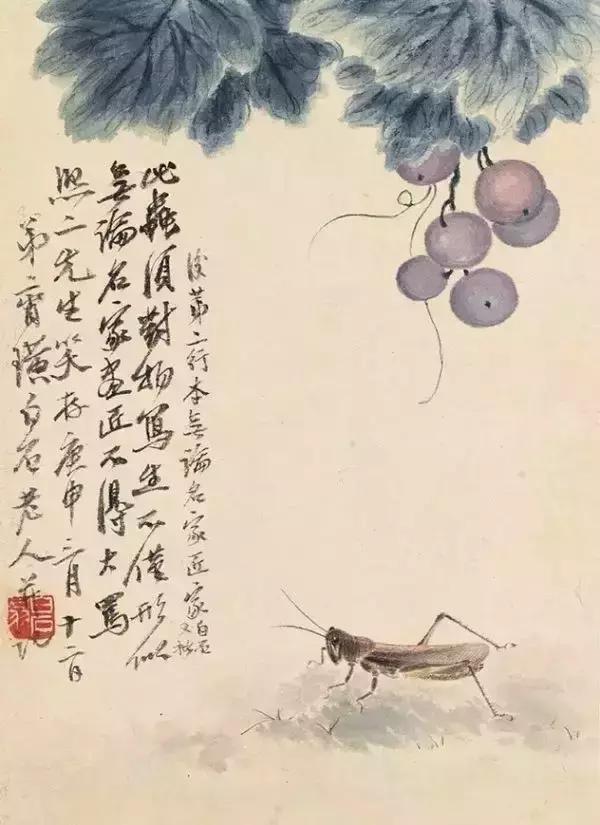 此蟲須對物寫生不僅形似
無論名家畫匠不得大罵
熙二先生笑存庚申三月十二日
弟齊璜白石老人並記
後第二行本無論名家匠家
白石又記
白石翁